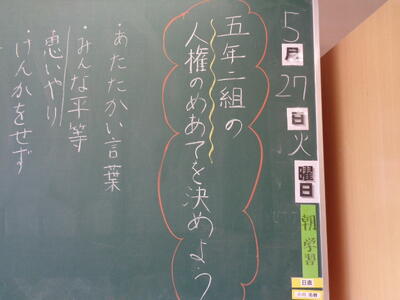 5月27日火曜日
朝学習
日直
五年二組の
人権のめあてを決めよう
・あたたかい言葉
・みんな平等
・思いやり
・けんかをせず